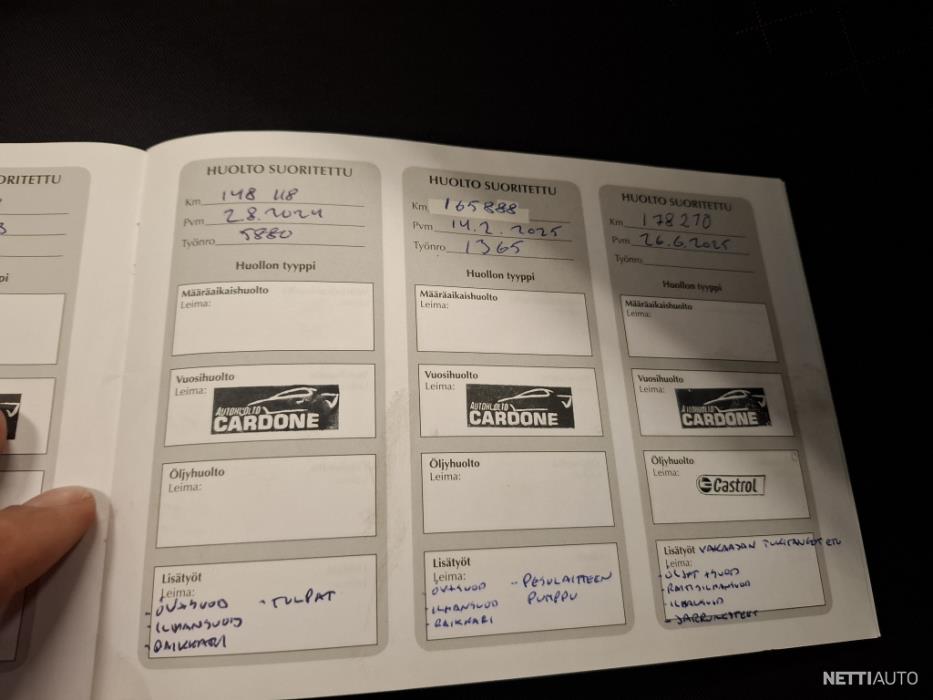 ORITETTU
3
pi
HUOLTO SUORITETTU
Km 148 118
Pvm 2.8.2024
Työnro 5880
Huollon tyyppi
Määräaikaishuolto
Leima:
Vuosihuolto
Leima:
AUTOHUOLTO
CARDONE
Öljyhuolto
Leima:
Lisätyöt
Leima:
- ÖV+SUOD - TULPAT
- ILMANSUOD
- RAIKKARI
HUOLTO SUORITETTU
Km 165888
Pvm 14.2.2025
Työnro 1365
Huollon tyyppi
Määräaikaishuolto
Leima:
Vuosihuolto
Leima:
AUTOHUOLTO
CARDONE
Öljyhuolto
Leima:
Lisätyöt
Leima:
- ÖV+SUOD - PESULAITTEEN
- ILMANSUOD PUMPPU
- RAIKKARI
HUOLTO SUORITETTU
Km 178270
Pvm 26.6.2025
Työnro
Huollon tyyppi
Määräaikaishuolto
Leima:
Vuosihuolto
Leima:
AUTOHUOLTO
CARDONE
Öljyhuolto
Leima:
Castrol
Lisätyöt VAKAAJAN TUKITANGOT ETU
Leima:
- ÖLJYT+SUOD
- RAITISILMANSUOD
- JARRUNESTEET
NETTIAUTO